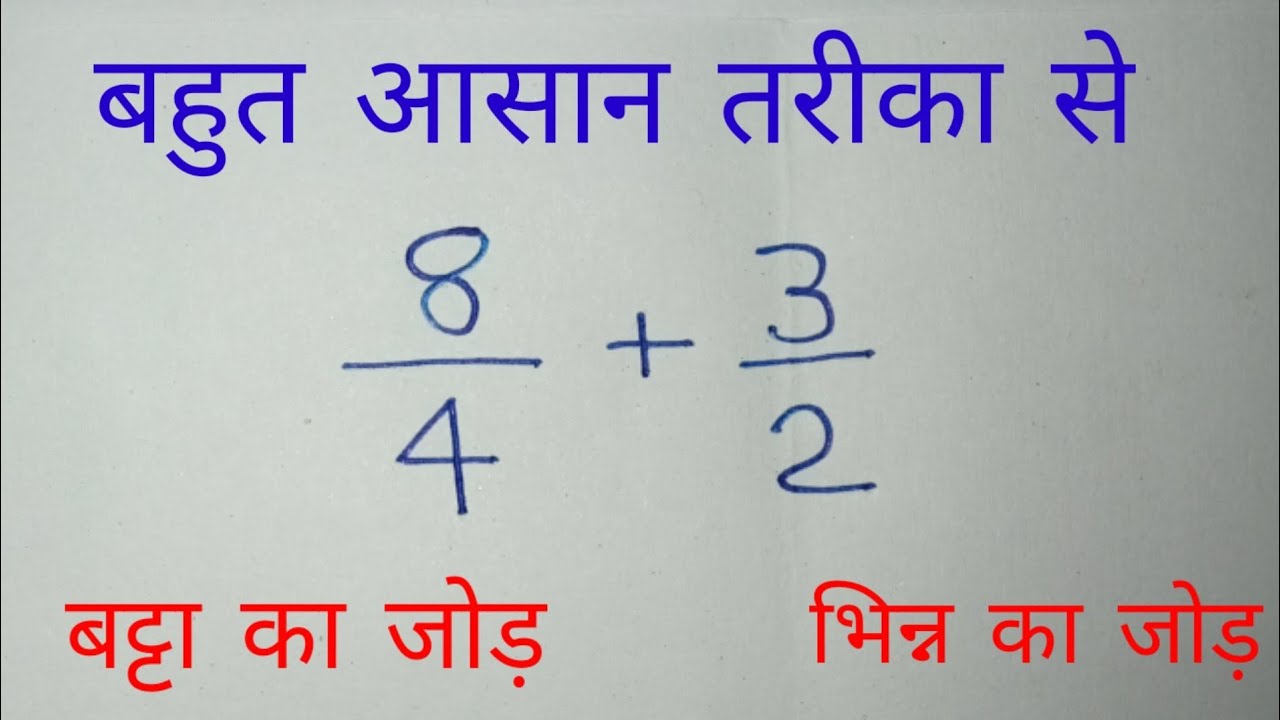 बहुत आसान तरीका से
8/4 + 3/2
बट्टा का जोड़ भिन्न का जोड़